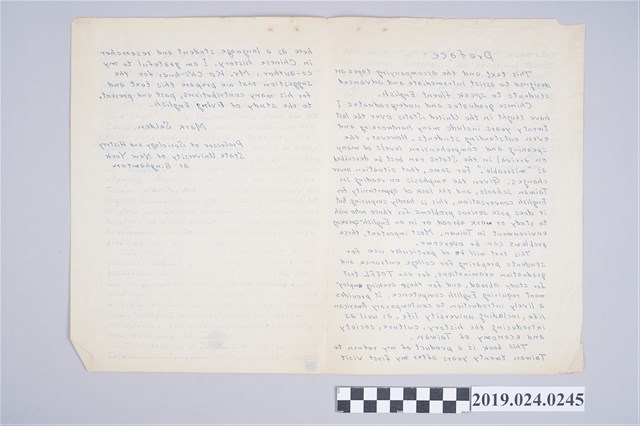 Preface
This text and the accompanying tapes are
designed to assist intermediate and advanced
students to speak fluent English.
Chinese graduates and undergraduates I
have taught in the United States over the last
twenty years include many hardworking and
even outstanding students. However, the
speaking and comprehension level of many
on arrival in the States can best be described
as "miserable." For some, that situation never
changes. Given the emphasis on reading in
Taiwan schools, and the lack of opportunity for
English conversation, this is hardly surprising but
it does pose serious problems for those who wish
to study or work abroad or in an English-speaking
environment in Taiwan. Most important, these
problems can be overcome.
This text will be of particular use for
students preparing for college entrance and
graduation examinations, for the TOEFL test
for study abroad, and for those seeking employ-
ment requiring English competence. It provides
a lively introduction to contemporary American
life, including university life, as well as
introducing the history, culture, society
and economy of Taiwan.
This book is a product of my return to
Taiwan twenty years after my first visit
here as a language student and researcher
in Chinese history. I am grateful to my
co-author, Mr. Ko Chi-hua for the
suggestion that we prepare this text and
for his many contributions, past and present,
to the study of living English.
Mark Selden
Professor of Sociology and History
State University of New York
at Binghamton
2019.024.0245